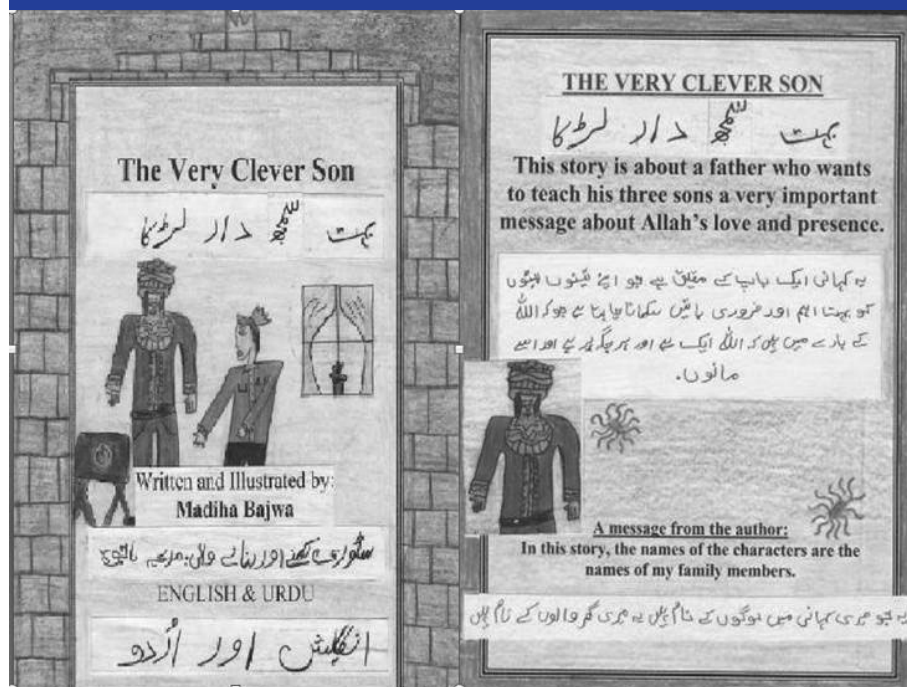 The Very Clever Son
بہت سمجھ دار لڑکا
Written and Illustrated by:
Madiha Bajwa
سٹوری لکھنے اور بنانے والی: مدیحہ باجوہ
ENGLISH & URDU
انگلیش اور اُردو
THE VERY CLEVER SON
بہت سمجھ دار لڑکا
This story is about a father who wants
to teach his three sons a very important
message about Allah's love and presence.
یہ کہانی ایک باپ کے متعلق ہے جو اپنے تینوں بیٹوں
کو بہت اہم اور ضروری باتیں سکھانا چاہتا ہے جو کہ اللہ
کے بارے میں ہیں کہ اللہ ایک ہے اور ہر جگہ پر ہے اور اسے
مانوں۔
A message from the author:
In this story, the names of the characters are the
names of my family members.
یہ جو میری کہانی میں لوگوں کے نام ہیں یہ میری گھر والوں کے نام ہیں